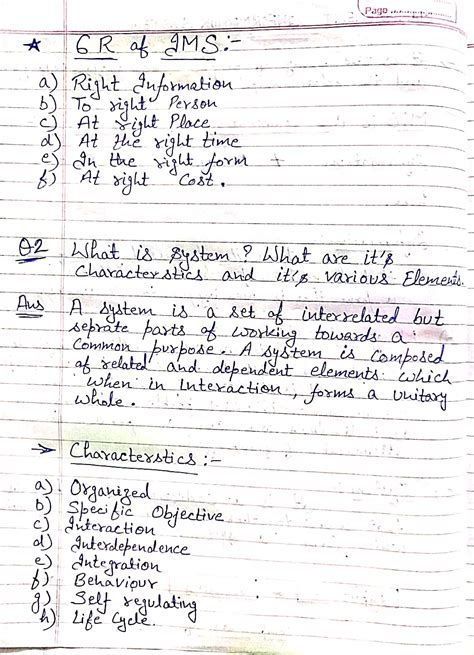 Page
★ 6 R of IMS:-
a) Right Information
b) To right Person
c) At right Place
d) At the right time
e) In the right form
f) At right Cost.
Q2 What is system? What are it's
Characterstics and it's various Elements.
Ans A system is a set of interrelated but
seprate parts of working towards a
common purpose. A system is composed
of related and dependent elements which
when in interaction, forms a unitary
whole.
→ Characterstics:-
a) Organized
b) Specific Objective
c) Interaction
d) Interdependence
e) Integration
f) Behaviour
g) Self regulating
h) Life Cycle.